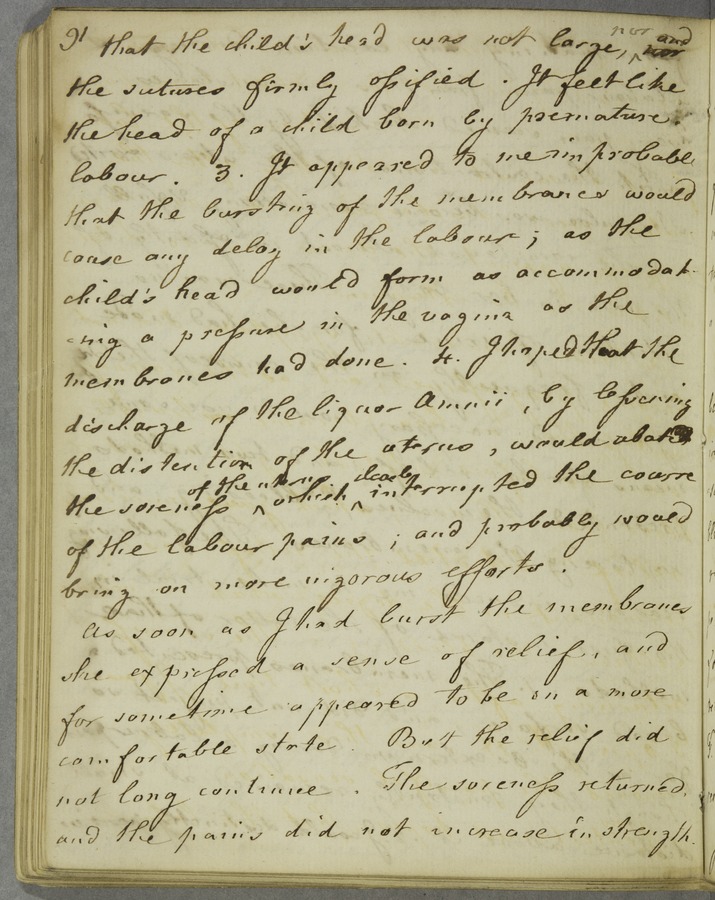 91 that the child's head was not large, nor and
the sutures firmly ossified. It felt like
the head of a child born by premature
labour. 3. It appeared to me improbable
that the bursting of the membranes would
cause any delay in the labour; as the
child's head would form as accommodat-
-ing a pressure in the vagina as the
membranes had done. 4. I hoped that the
discharge of the liquor Amnii, by lessening
the distention of the uterus, would abate
the soreness of the uterus which clearly interrupted the course
of the labour pains; and probably would
bring on more vigorous efforts.
As soon as I had burst the membranes
she expressed a sense of relief, and
for sometime appeared to be in a more
comfortable state. But the relief did
not long continue. The soreness returned,
and the pains did not increase in strength.